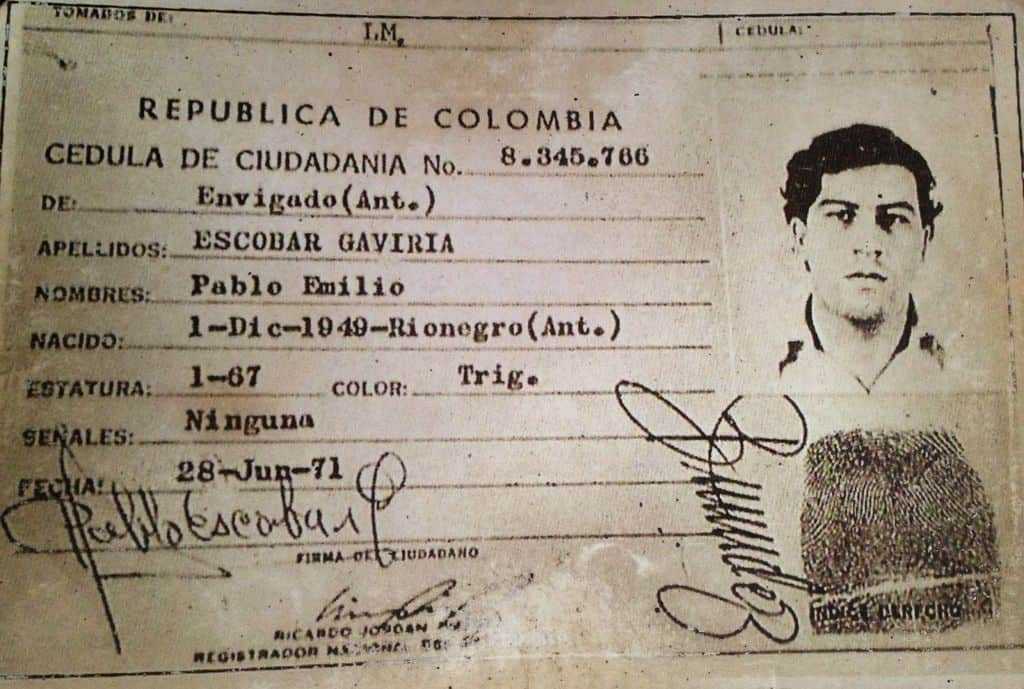 TOMADOS DE:
I.M.
CEDULA:
REPUBLICA DE COLOMBIA
CEDULA DE CIUDADANIA No. 8.345.766
DE: Envigado(Ant.)
APELLIDOS: ESCOBAR GAVIRIA
NOMBRES: Pablo Emilio
NACIDO: 1-Dic-1949-Rionegro(Ant.)
ESTATURA: 1-67 COLOR: Trig.
SEÑALES: Ninguna
FECHA: 28-Jun-71
Pablo Escobar G
FIRMA DEL CIUDADANO
RICARDO JORDAN
REGISTRADOR NACIONAL DEL
INDICE DERECHO